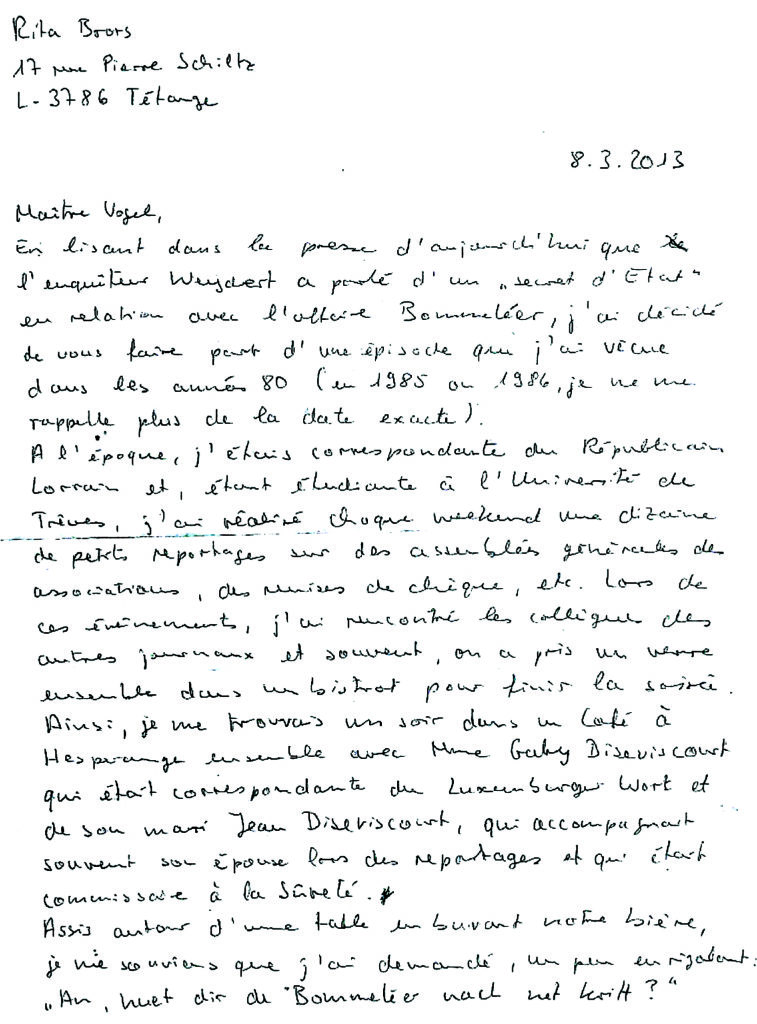 Rita Brors
17 rue Pierre Schiltz
L-3786 Tétange
8.3.2013
Maître Vogel,
En lisant dans la presse d'aujourd'hui que
l'enquêteur Weydert a parlé d'un „secret d'Etat"
en relation avec l'affaire Bommeléer, j'ai décidé
de vous faire part d'une épisode que j'ai vécue
dans les années 80 (en 1985 ou 1986, je ne me
rappelle plus de la date exacte).
A l'époque, j'étais correspondante du Républicain
Lorrain et, étant étudiante à l'Université de
Trèves, j'ai réalisé chaque weekend une dizaine
de petits reportages sur des assemblés générales des
associations, des remises de chèque, etc. Lors de
ces événements, j'ai rencontré les collègues des
autres journaux et souvent, on a pris un verre
ensemble dans un bistrot pour finir la soirée.
Ainsi, je me trouvais un soir dans un Café à
Hesperange ensemble avec Mme Gaby Diseviscourt
qui était correspondante du Luxemburger Wort et
de son mari Jean Diseviscourt, qui accompagnait
souvent son épouse lors des reportages et qui était
commissaire à la Sûreté.
Assis autour d'une table en buvant notre bière,
je me souviens que j'ai demandé, un peu en rigolant:
„An, huet dir de Bommeléer nach net kritt?"